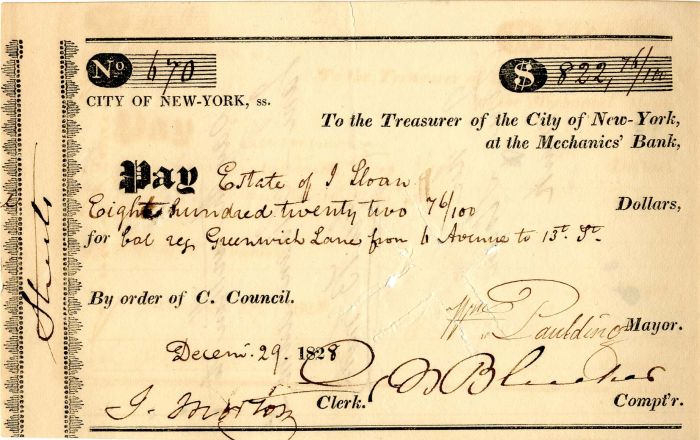 No. 670
$ 822, 76/100
CITY OF NEW-YORK, ss.
To the Treasurer of the City of New-York,
at the Mechanics' Bank,
Pay Estate of J Sloan
Eight hundred twenty two 76/100 Dollars,
for bal reg Greenwich Lane from 6 Avenue to 13t. St.
By order of C. Council.
Wm Paulding Mayor.
Decem. 29. 1828
J. Morton Clerk.
Bleecker Compt'r.
Streets